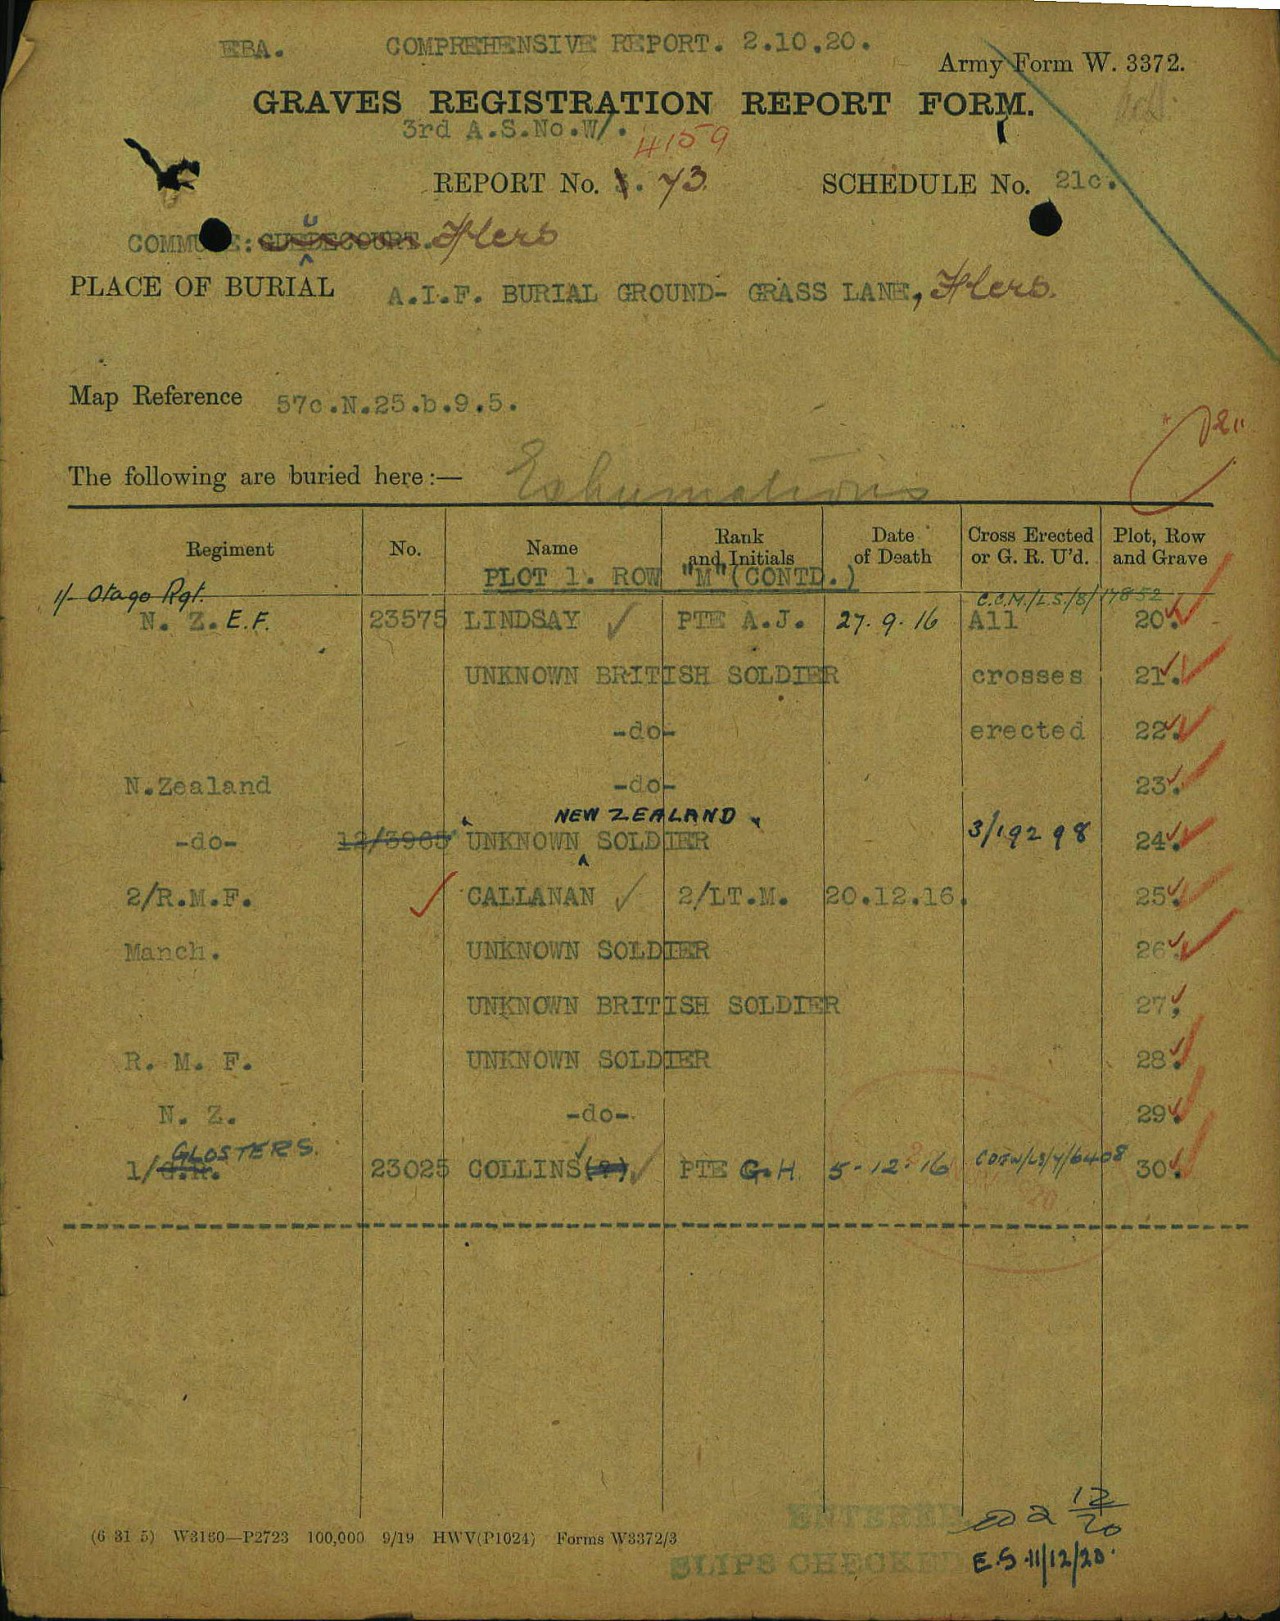 EBA. COMPREHENSIVE REPORT. 2.10.20.
Army Form W. 3372.
GRAVES REGISTRATION REPORT FORM.
3rd A.S.No.W/. 4159
REPORT No. 73. SCHEDULE No. 21c.
COMMUNE: GUEDECOURT. Flers
PLACE OF BURIAL A.I.F. BURIAL GROUND- GRASS LANE, Flers.
Map Reference 57c.N.25.b.9.5.
"2"
The following are buried here:— Exhumations
Regiment No. Name Rank and Initials Date of Death Cross Erected or G. R. U'd. Plot, Row and Grave
PLOT 1. ROW "M"(CONTD.)
1/- Otago Rgt. C.C.M./L.S/8/17852
N. Z. E.F. 23575 LINDSAY PTE A.J. 27.9.16 All 20.
UNKNOWN BRITISH SOLDIER crosses 21.
-do- erected 22.
N.Zealand -do- 23.
NEW ZEALAND
-do- 12/3965 UNKNOWN SOLDIER 3/19298 24.
2/R.M.F. CALLANAN 2/LT.M. 20.12.16. 25.
Manch. UNKNOWN SOLDIER 26.
UNKNOWN BRITISH SOLDIER 27.
R. M. F. UNKNOWN SOLDIER 28.
N. Z. -do- 29.
GLOSTERS.
1/G.R. 23025 COLLINS(?) PTE G.H. 5-12-16 30.
ENTERED
12/20
(6 31 5) W3160—P2723 100,000 9/19 HWV(P1024) Forms W3372/3
SLIPS CHECKED
E.S 11/12/20.